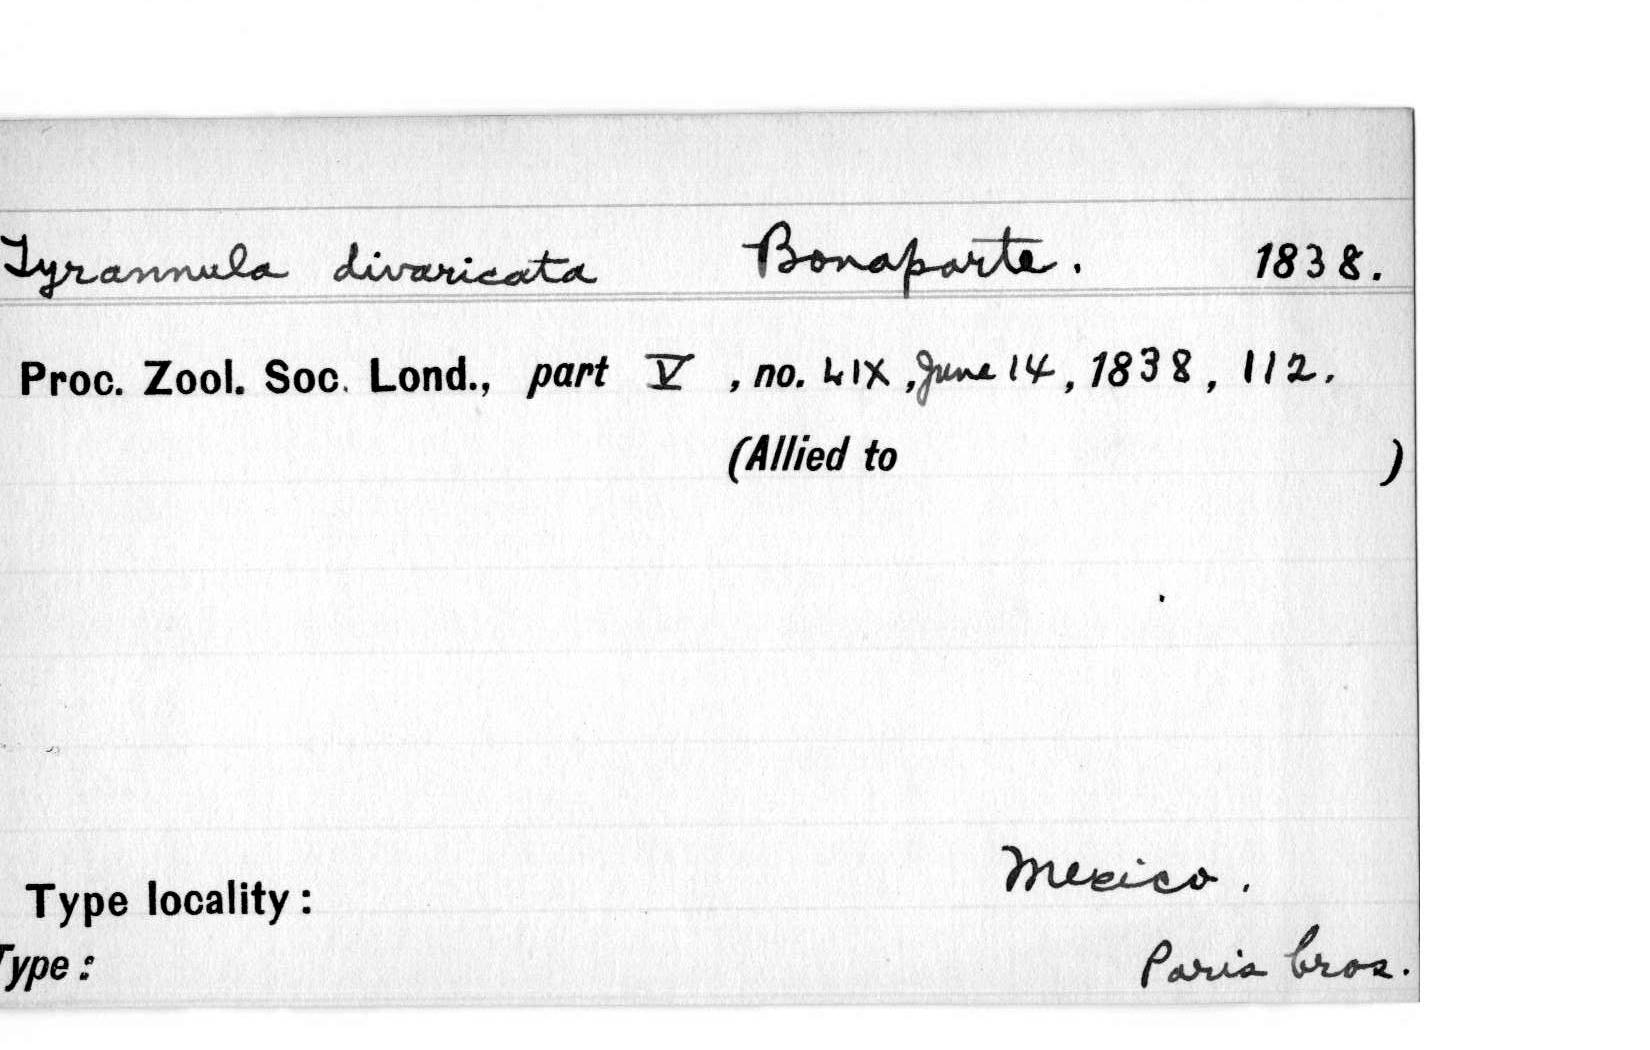 Tyrannula divaricata Bonaparte. 1838.
Proc. Zool. Soc. Lond., part V, no. LIX, June 14, 1838, 112.
(Allied to )
Mexico.
Type locality:
Type: Paris bros.